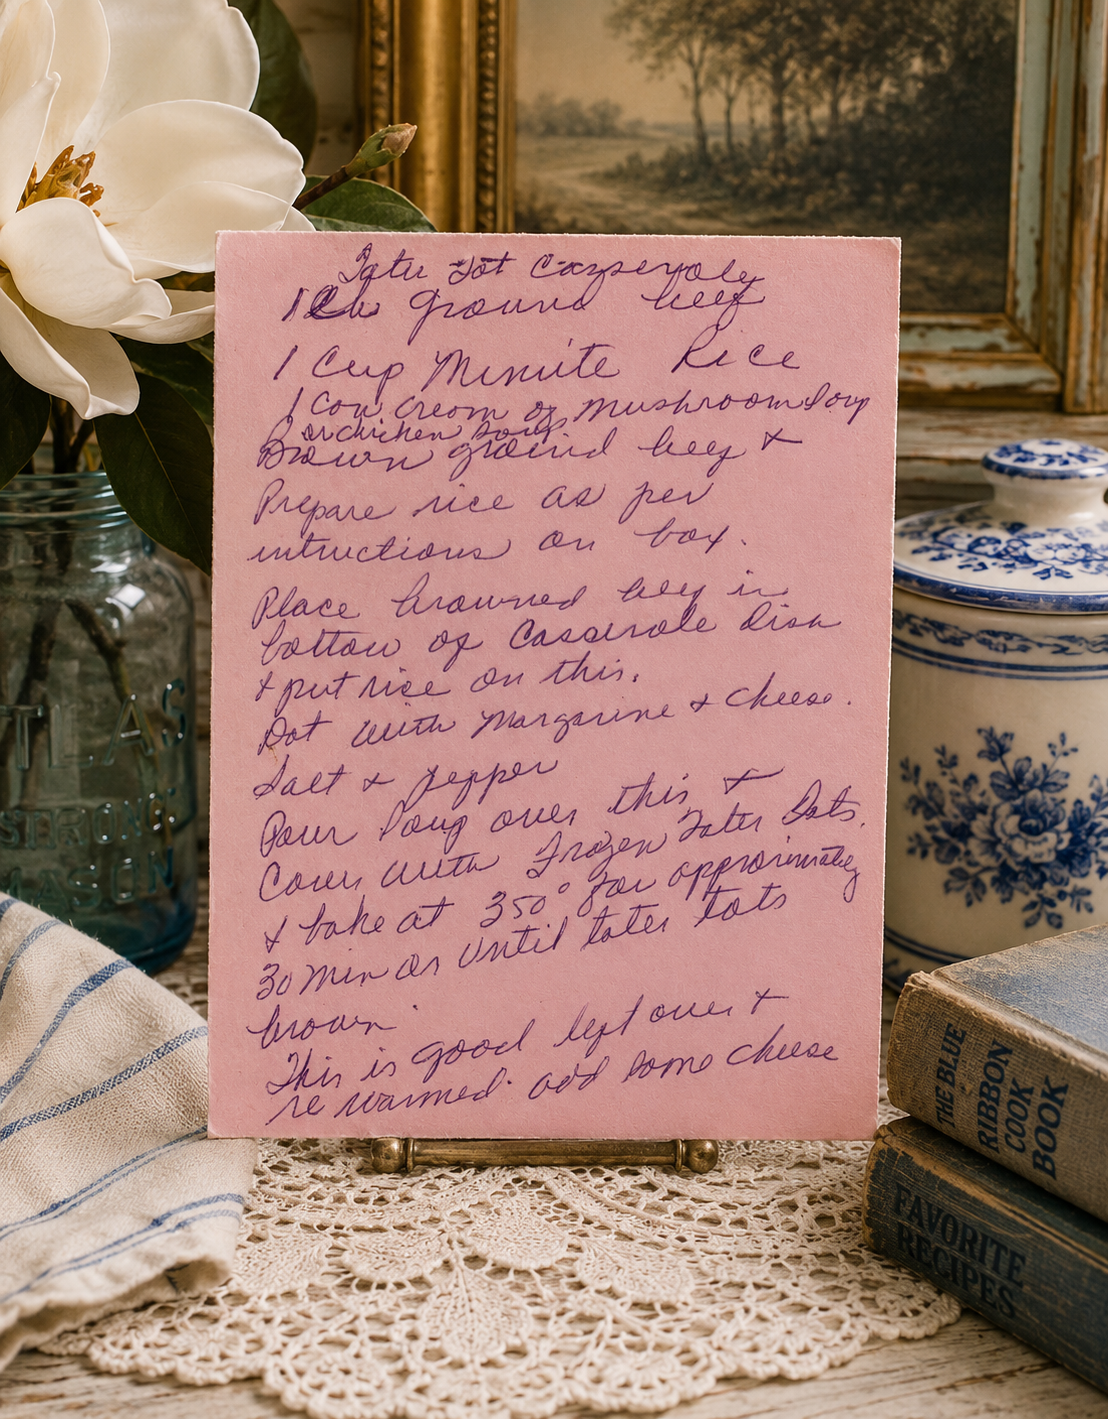 Tater Tot Casserole
1 lb ground beef
1 Cup Minute Rice
1 Can Cream of Mushroom Soup
or chicken soup
Brown ground beef +
Prepare rice as per
intructions on box.
Place browned beef in
bottom of Casserole Dish
+ put rice on this.
Dot with Margarine + cheese.
Salt + pepper
Pour Soup over this +
Cover with Frozen Tater Tots.
+ bake at 350° for approximately
30 min or until tater tots
brown.
This is good left over +
re warmed. add some cheese
ATLAS
STRONG
MASON
THE BLUE
RIBBON
COOK
BOOK
FAVORITE
RECIPES